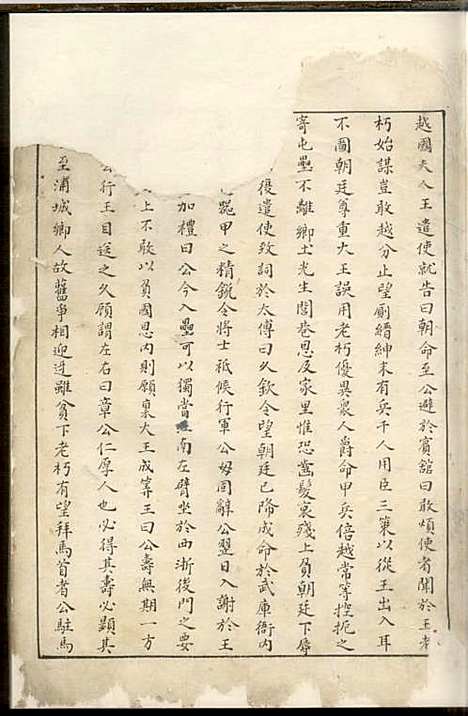 越國夫人王遣使就告曰朝命至公避於賓舘曰敢煩使者聞於王老
朽始謀豈敢越分止望廁縉紳末有兵千人用臣三策以從王出入耳
不圖朝廷尊重大王誤用老朽優異衆人爵命甲兵倍越常等控扼之
寄屯壘不離鄉土光生閭巷恩及家里惟恐黨髮衰殘上負朝廷下辱
後遣使致詞於太傅曰久欽令望朝廷已降成命於武庫衙內
甲之精銳令將士祗候行軍公毋固辭公翌日入謝於王
加禮曰公今入壘可以獨當南左臂坐於西浙後門之要
上不敢以負國恩內則願裹大王成筭王曰公壽無期一方
公行王目送之久顧謂左右曰章公仁厚人也必得其壽必顯其
至浦城鄉人故舊爭相迎迓雖貧下老朽有望拜馬首者公駐馬